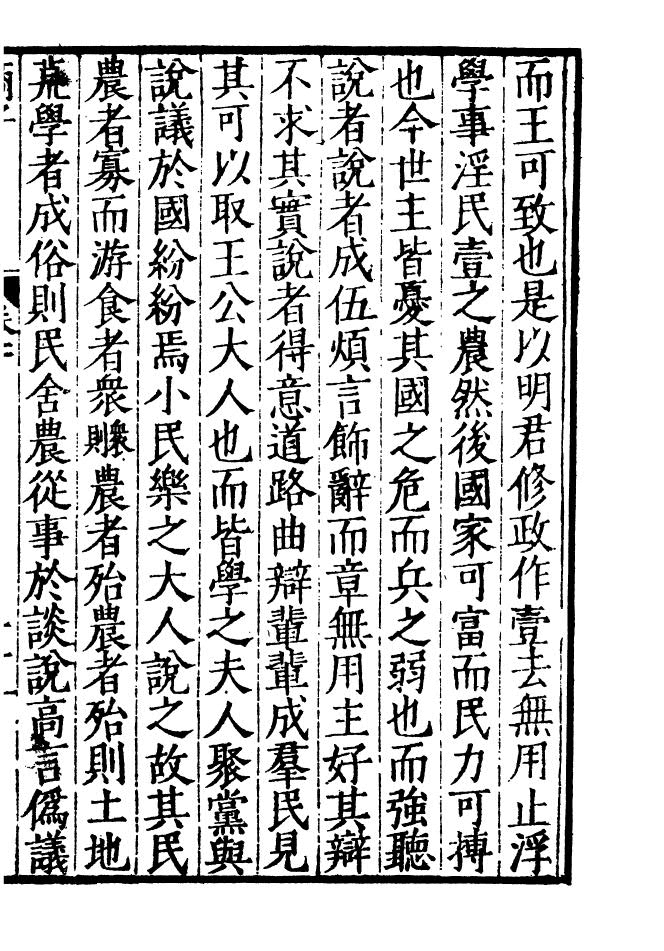 而王可致也是以明君修政作壹去無用止浮
學事淫民壹之農然後國家可富而民力可摶
也今世主皆憂其國之危而兵之弱也而強聽
說者說者成伍煩言飾辭而章無用主好其辯
不求其實說者得意道路曲辯輩輩成羣民見
其可以取王公大人也而皆學之夫人聚黨與
說議於國紛紛焉小民樂之大人說之故其民
農者寡而游食者衆衆則農者殆農者殆則土地
荒學者成俗則民舍農從事於談說高言僞議